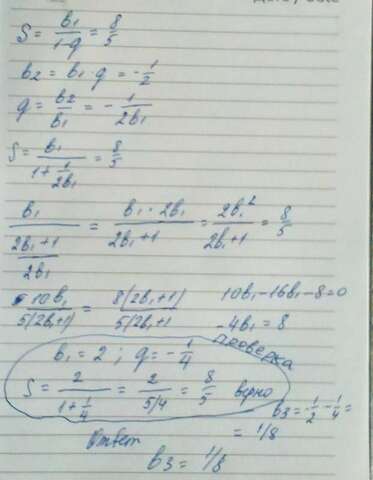 S = b₁/(1-q) = 8/5
b₂ = b₁ · q = -1/2
q = b₂/b₁ = - 1/(2b₁)
S = b₁/(1 + 1/(2b₁)) = 8/5
b₁/((2b₁+1)/(2b₁)) = (b₁ · 2b₁)/(2b₁+1) = 2b₁²/(2b₁+1) = 8/5
10b₁/(5(2b₁+1)) = 8(2b₁+1)/(5(2b₁+1) 10b₁-16b₁-8=0
-4b₁ = 8
b₁ = 2 ; q = -1/4 проверка
S = 2/(1+1/4) = 2/(5/4) = 8/5 верно
b₃ = -1/2 · -1/4 =
= 1/8
Ответ
b₃ = 1/8